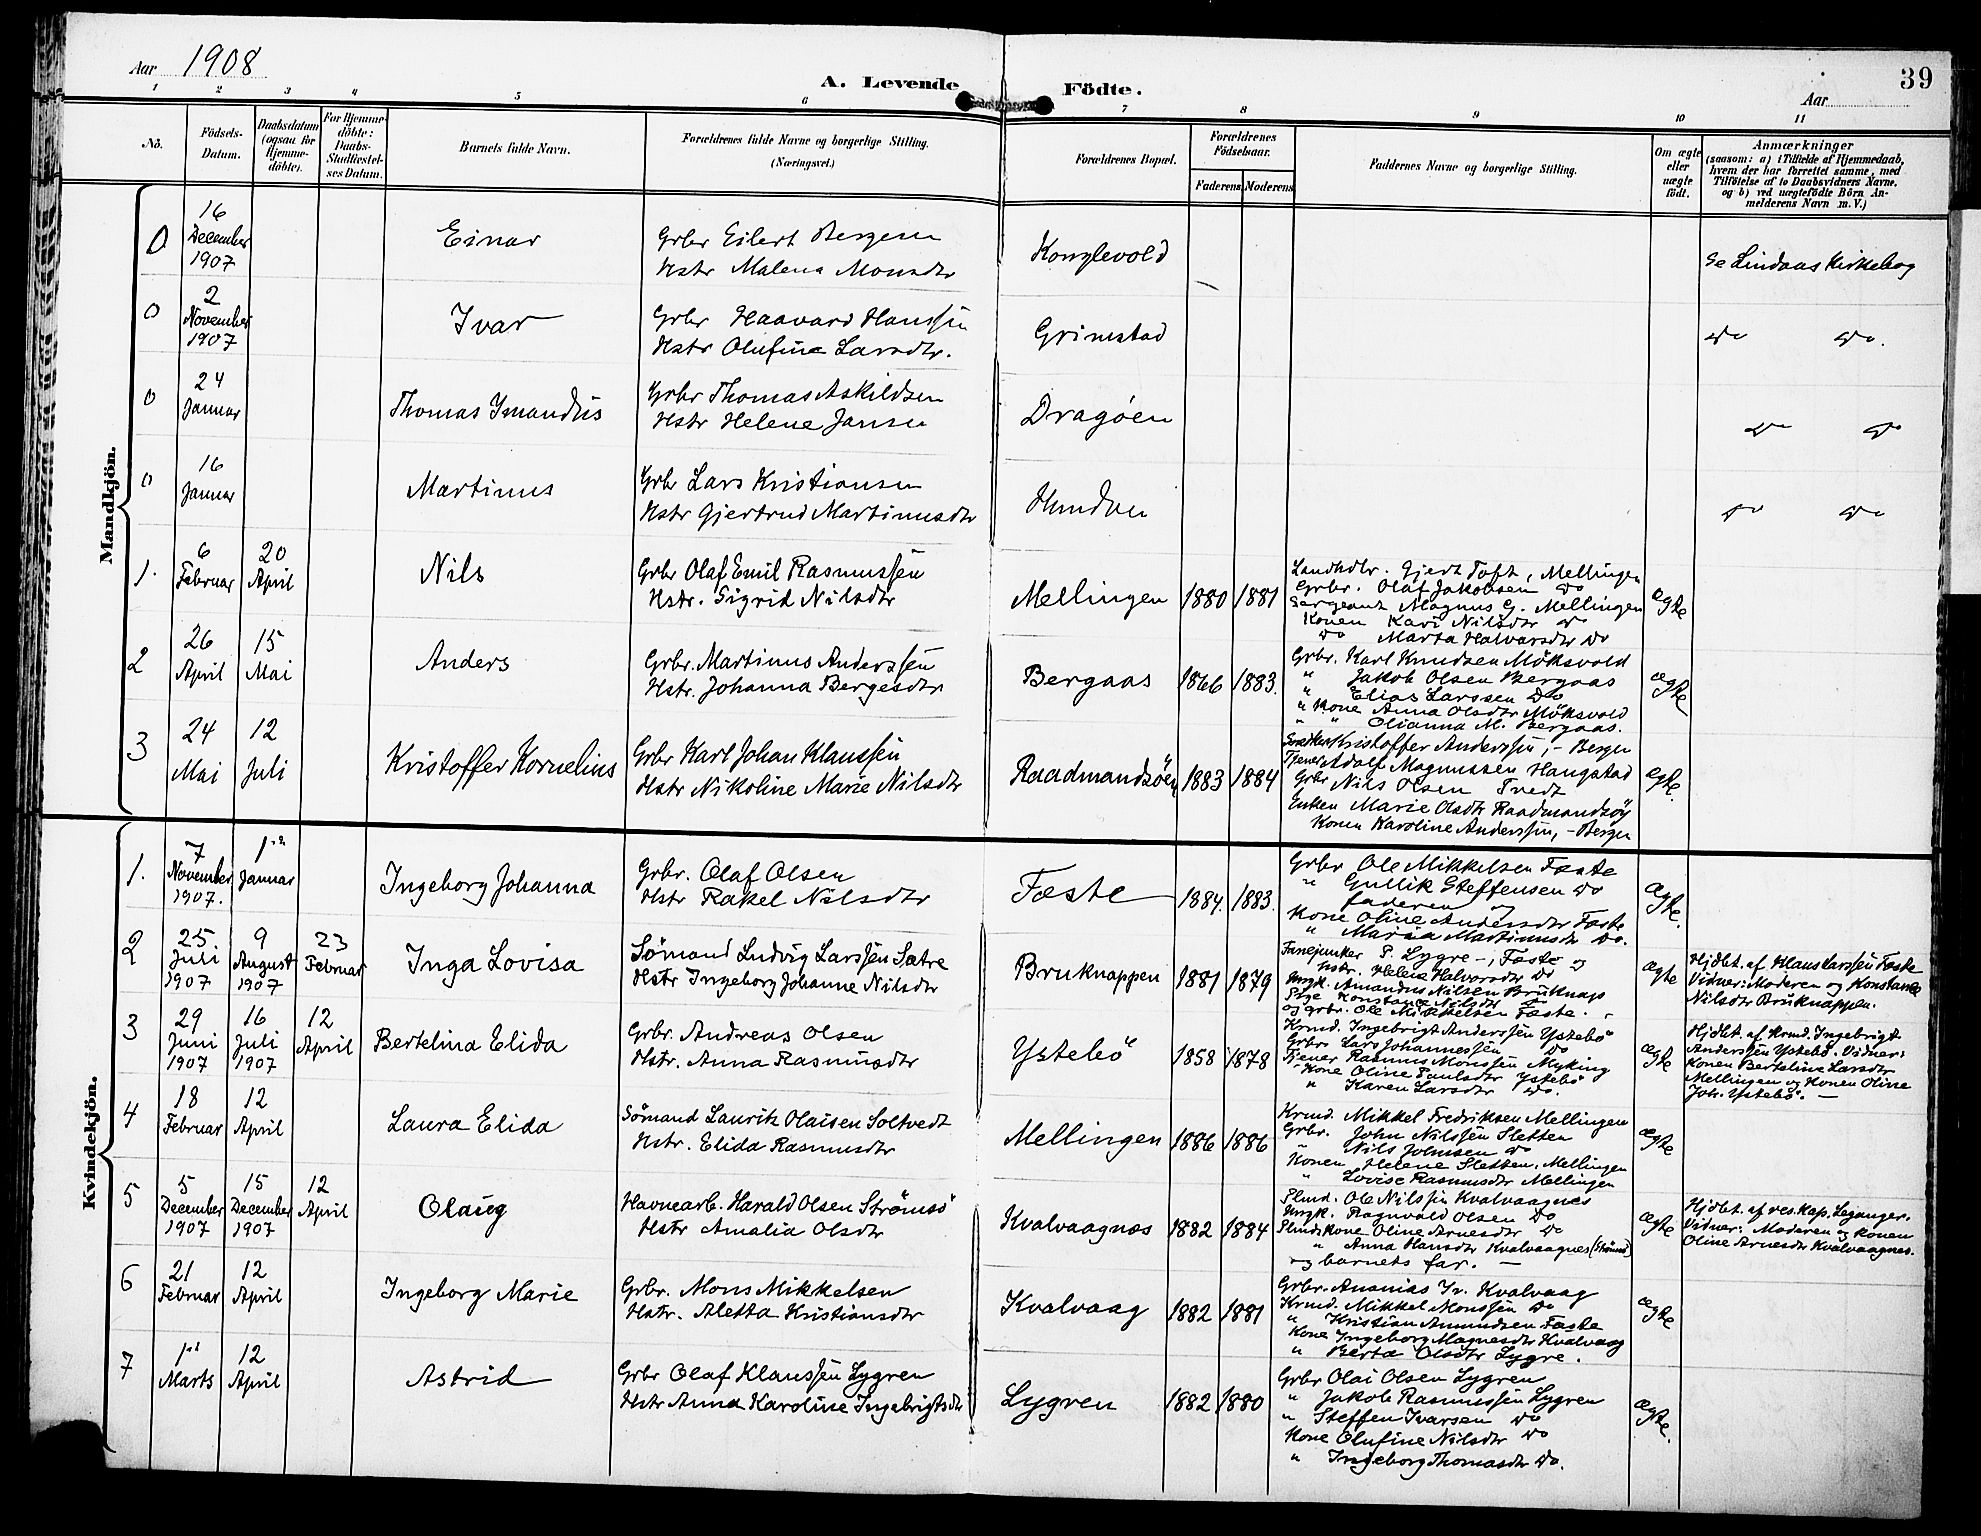 Aar 1908
A. Levende Födte.
39
Aar
1 2 3 4 5 6 7 8 9 10 11
No.
Födsels-Datum.
Daabsdatum (ogsaa for Hjemme-döbte).
For Hjemme-döbte: Daabs-Stadfæstel-ses Datum.
Barnets fulde Navn.
Forældrenes fulde Navne og borgerlige Stilling.
(Næringsvei.)
Forældrenes Bopæl.
Forældrenes Födselsaar.
Faderens. Moderens.
Faddernes Navne og borgerlige Stilling.
Om ægte eller uægte födt.
Anmærkninger
(saasom: a) i Tilfælde af Hjemmedaab, hvem der har forrettet samme, med Tilföielse af to Daabsvidners Navne. og b) ved uægtefödte Börn An-melderens Navn m. V.)
Mandkjön.
0 16 December 1907 Einar
Grbr Eilert Bergesen
Hstr Malena Monsdtr
Konglevold
Se Lindaas Kirkebog
0 2 November 1907 Ivar
Grbr Haavard Hanssen
Hstr Olufine Larsdtr.
Grimstad
Do Do.
0 24 Januar Thomas Ymandus
Grbr Thomas Askildsen
Hstr Helene Jansen
Dragöen
Do Do
0 16 Januar Martinus
Grbr Lars Kristiansen
Hstr Gjertrud Martinusdtr
Hundven
Do Do
1. 6 Februar 20 April Nils
Grbr Olaf Emil Rasmussen
Hstr. Sigrid Nilsdtr
Mellingen 1880 1881
Landhdlr. Gjert Toft, Mellingen
Grbr. Olaf Jakobsen Do
Sergeant Magnus G. Mellingen
Konen Kari Nilsdtr Do
Do Marta Halvarsdtr Do
ægte
2 26 April 15 Mai Anders
Grbr. Martinus Anderssen
Hstr. Johanna Bergesdtr
Bergaas 1866 1883.
Grbr. Karl Knudsen Möksvold
" Jakob Olsen Bergaas
" Elias Larssen Do
" Kone Anna Olsdtr Möksvold
" " Olianna M. Bergaas.
ægte
3 24 Mai 12 Juli Kristoffer Kornelius
Grbr Karl Johan Klaussen
Hstr Nikoline Marie Nilsdtr
Raadmandsöen 1883 1884
Kristoffer Anderssen, - Bergen
Tjener Adolf Magnussen Haugstad
Grbr Nils Olsen Tvedt
Enken Marie Olsdtr Raadmandsöy
Konen Karoline Anderssen, - Bergen
ægte.
Kvindekjön.
1. 7 November 1907. 1ste Januar Ingeborg Johanna
Grbr. Olaf Olsen
Hstr Rakel Nilsdtr
Fæste 1884. 1883.
Grbr Ole Mikkelsen Fæste
" Gullik Steffensen Do
faderen og
Kone Oline Andersdtr Fæste
" Maria Martinusdtr Do.
Ægte.
2 25 Juli 1907 9 August 1907 23 Februar Inga Lovisa
Sömand Ludvig Larssen Sætre
Hstr Ingeborg Johanne Nilsdtr
Bruknappen 1881 1879
Fanejunker P. Lygre -, Fæste og
Hstr. Helene Halvorsdtr Do
Ungk. Amandus Nilsen Bruknap
Pige Konstanse Nilsdtr Do
og grbr. Ole Mikkelsen Fæste.
ægte
Hjdbt. af Klaus Larssen Fæste
Vidner: Moderen og Konstanse
Nilsdtr Bruknappen.
3 29 Juni 1907 16 Juli 1907 12 April Bertelina Elida
Grbr. Andreas Olsen
Hstr. Anna Rasmusdtr
Ystebö 1858 1878
Krmd. Ingebrigt Anderssen Ystebö
Grbr Lars Johannessen Do
Tjener Rasmus Monssen Myking
Kone Oline Paulsdtr Ystebö
" Karen Larsdtr Do.
ægte
Hjdbt. af Krmd. Ingebrigt
Anderssen Ystebö. Vidner:
Konen Berteline Larsdtr
Mellingen og Konen Oline
Joh. Ystebö. -
4 18 Februar 12 April Laura Elida
Sömand Lauritz Olaisen Soltvedt
Hstr. Elida Rasmusdtr
Mellingen 1886 1886
Krmd. Mikkel Fredriksen Mellingen
Grbr. John Nilssen Sletten
" Nils Johnsen Do
Konen Helene Sletten. Mellingen
" Lovise Rasmusdtr Mellingen
ægte
5 5 December 1907 15 December 1907 12 April Olaug
Havnearb. Harald Olsen Strömsö
Hstr Amalia Olsdtr
Kvalvaagnæs 1882 1884
Plmd. Ole Nilssen Kvalvaagnes
Ungk. Ragnvald Olsen Do
Plmdskone Oline Arnesdtr Do
" Anna Hansdtr Kvalvaagnes (Strömsö)
og barnets far. -
ægte
Hjdbt. af res. kap. Leganger.
Vidner: Moderen og Konen
Oline Arnesdtr Kvalvaagnes.
6 21 Februar 12 April Ingeborg Marie
Grbr. Mons Mikkelsen
Hstr. Aletta Kristiansdtr
Kvalvaag 1882 1881
Grbr. Ananias Iv. Kvalvaag
Krmd. Mikkel Monssen Do
" Kristian Amundsen Fæste
Kone Ingeborg Magnesdtr Kvalvaag
" Berta Olsdtr Lygre.
ægte
7 1ste Marts 12 April Astrid
Grbr Olaf Klaussen Lygren
Hstr Anna Karoline Ingebrigtsdtr
Lygren 1882 1880
Grbr Olai Olsen Lygren
" Jakob Rasmussen Lygren
" Steffen Ivarsen Do
Kone Olufine Nilsdtr Do
" Ingeborg Thomasdtr Do.
ægte.